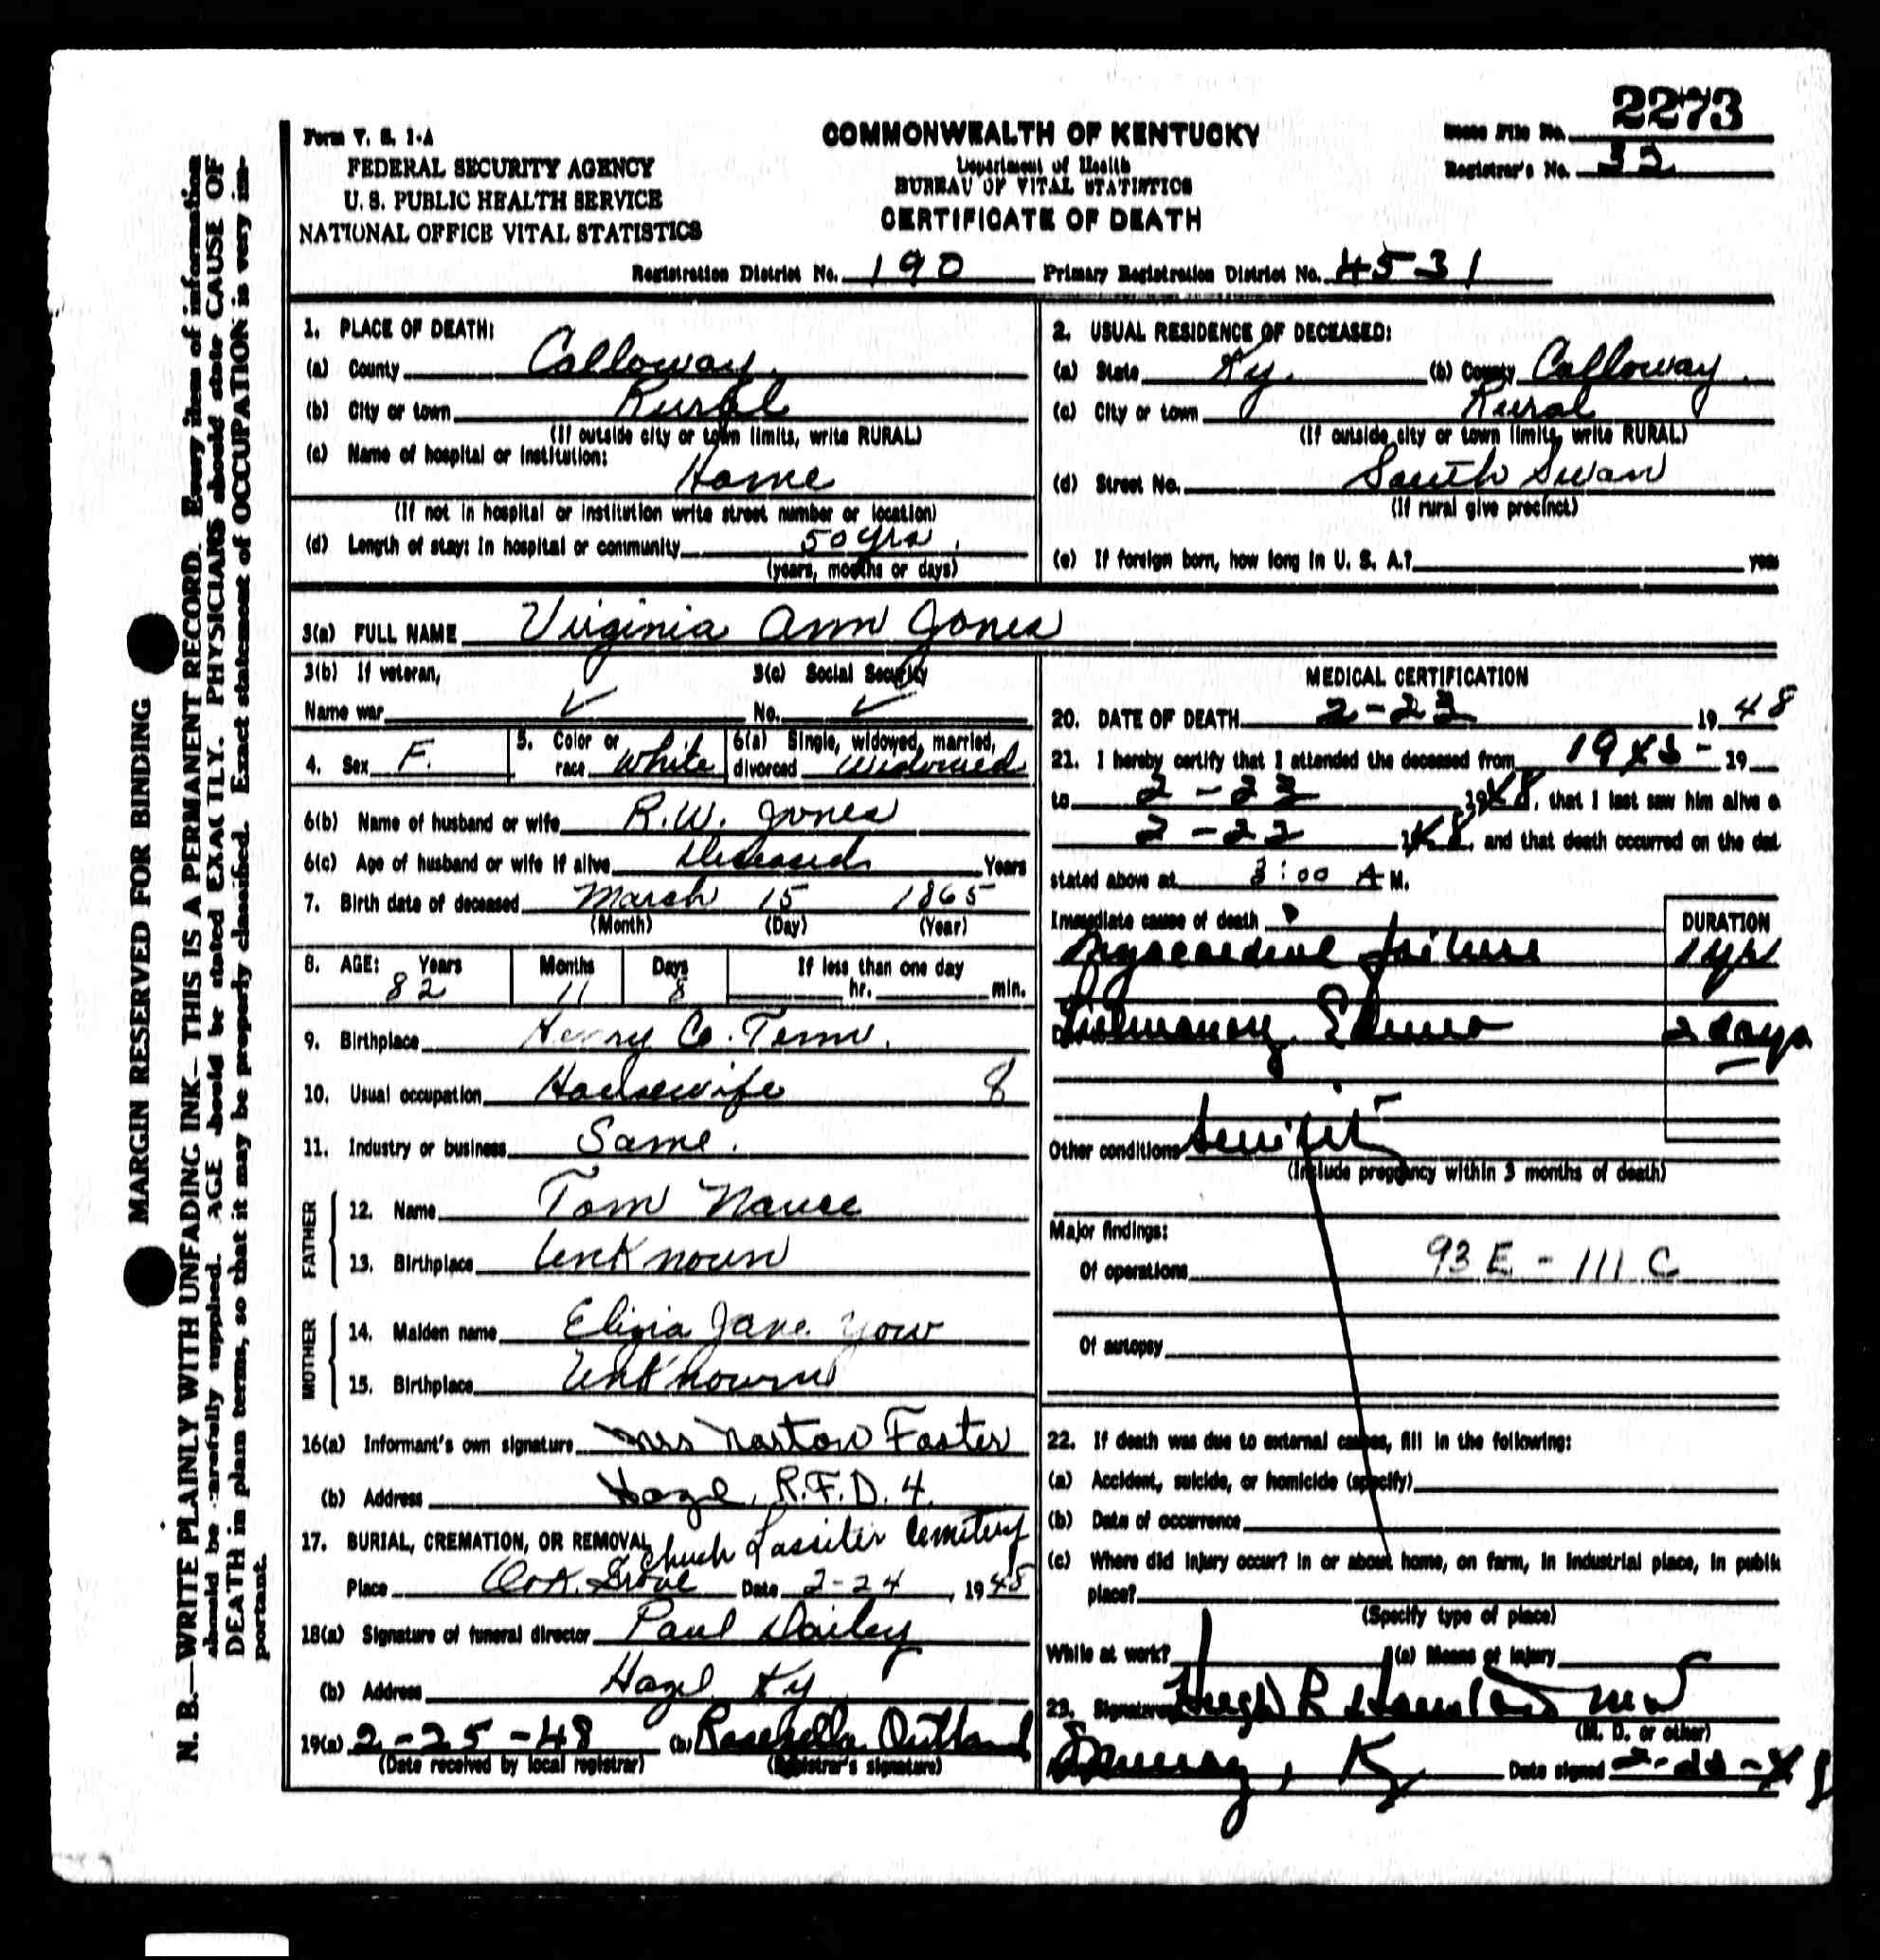 2273
Form V. S. 1-A
COMMONWEALTH OF KENTUCKY
State File No.
FEDERAL SECURITY AGENCY
Department of Health
Registrar's No. 32
U. S. PUBLIC HEALTH SERVICE
BUREAU OF VITAL STATISTICS
NATIONAL OFFICE VITAL STATISTICS
CERTIFICATE OF DEATH
Registration District No. 190 Primary Registration District No. 4531
MARGIN RESERVED FOR BINDING
N. B.—WRITE PLAINLY WITH UNFADING INK—THIS IS A PERMANENT RECORD. Every item of information
should be carefully supplied. AGE should be stated EXACTLY. PHYSICIANS should state CAUSE OF
DEATH in plain terms, so that it may be properly classified. Exact statement of OCCUPATION is very im-
portant.
1. PLACE OF DEATH:
(a) County Calloway
(b) City or town Rural
(If outside city or town limits, write RURAL)
(c) Name of hospital or institution:
Home
(If not in hospital or institution write street number or location)
(d) Length of stay: In hospital or community 50 yrs.
(years, months or days)
2. USUAL RESIDENCE OF DECEASED:
(a) State Ky. (b) County Calloway
(c) City or town Rural
(If outside city or town limits, write RURAL)
(d) Street No. South Swan
(If rural give precinct)
(e) If foreign born, how long in U. S. A.? years
3(a) FULL NAME Virginia Ann Jones
3(b) If veteran, 3(c) Social Security
Name war ✓ No. ✓
4. Sex F. 5. Color or race White 6(a) Single, widowed, married, divorced Widowed
6(b) Name of husband or wife R.W. Jones
6(c) Age of husband or wife if alive Deceased Years
7. Birth date of deceased March 15 1865
(Month) (Day) (Year)
8. AGE: Years Months Days If less than one day
82 11 8 hr. min.
9. Birthplace Henry Co. Tenn.
10. Usual occupation Housewife 8
11. Industry or business Same.
FATHER
12. Name Tom Nance
13. Birthplace Unknown
MOTHER
14. Maiden name Jane Yow
15. Birthplace Unknown
16(a) Informant's own signature Mrs Norton Foster
(b) Address Hazel, R.F.D. 4
17. BURIAL, CREMATION, OR REMOVAL Church Lassiter Cemetery
Place Oak Grove Date 2-24, 1948
18(a) Signature of funeral director Paul Dailey
(b) Address Hazel Ky
19(a) 2-25-48 (b) Outland
(Date received by local registrar) (Registrar's signature)
MEDICAL CERTIFICATION
20. DATE OF DEATH 2-23 1948
21. I hereby certify that I attended the deceased from 19
to 2-23 1948, that I last saw him alive o
2-22 1948, and that death occurred on the dat
stated above at 3:00 A M.
Immediate cause of death
DURATION
Myocardial failure 1 yr
Pulmonary Edema 2 days
Other conditions Senility
(Include pregnancy within 3 months of death)
Major findings:
Of operations 93 E - 111 C
Of autopsy
22. If death was due to external causes, fill in the following:
(a) Accident, suicide, or homicide (specify)
(b) Date of occurrence
(c) Where did injury occur? In or about home, on farm, in industrial place, in public
place?
(Specify type of place)
While at work? (e) Means of injury
23. Signature Hugh M D
(M. D. or other)
Murray, Ky Date signed